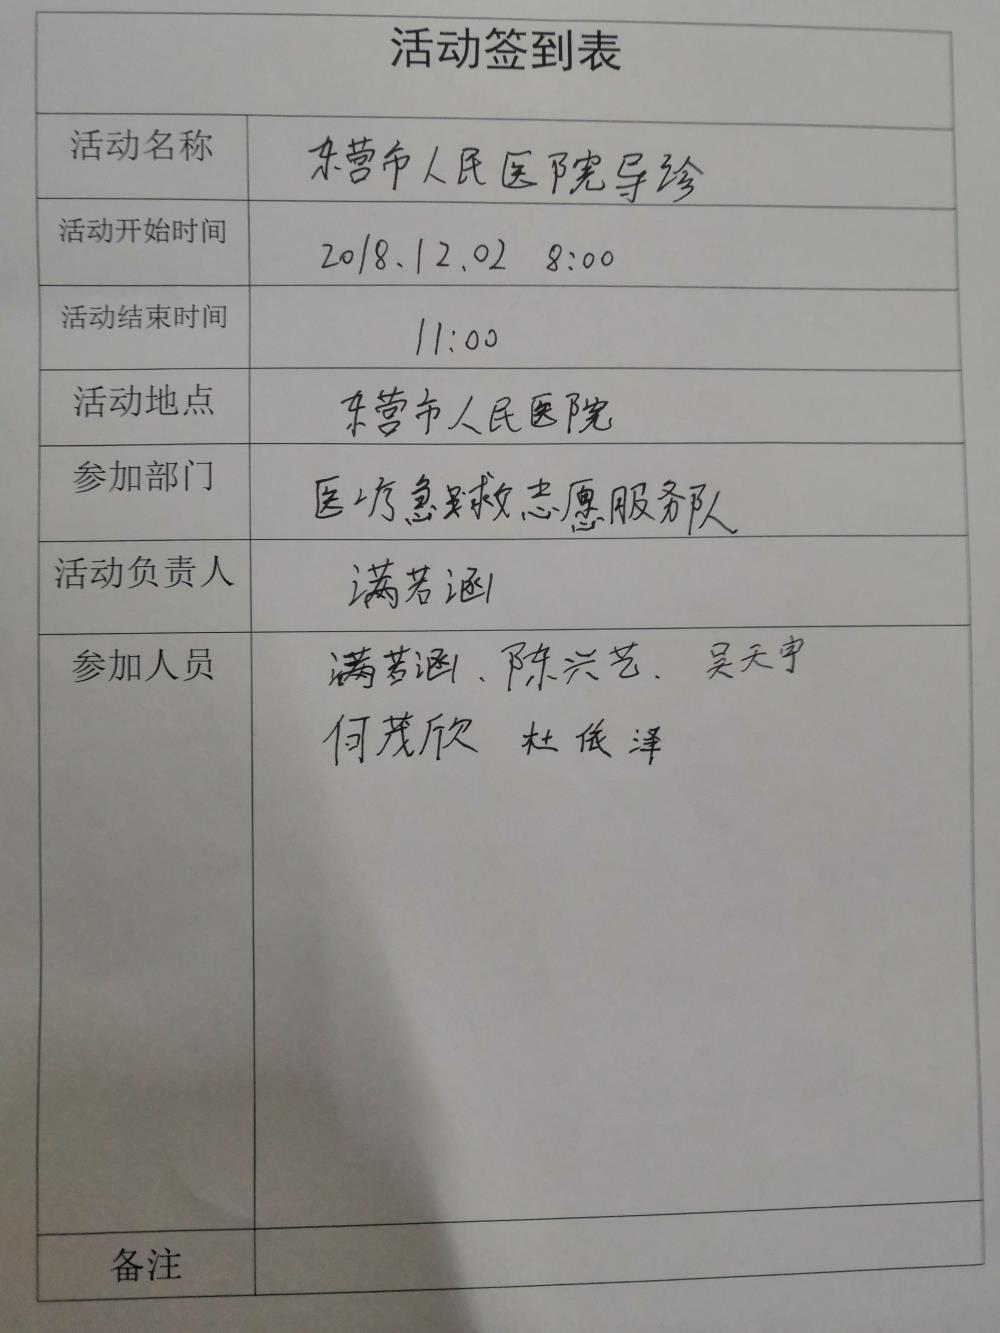 活动签到表
活动名称 东营市人民医院导诊
活动开始时间 2018.12.02 8:00
活动结束时间 11:00
活动地点 东营市人民医院
参加部门 医疗急救志愿服务队
活动负责人 满若涵
参加人员 满若涵、陈兴艺、吴天宇
何茂欣 杜依泽
备注